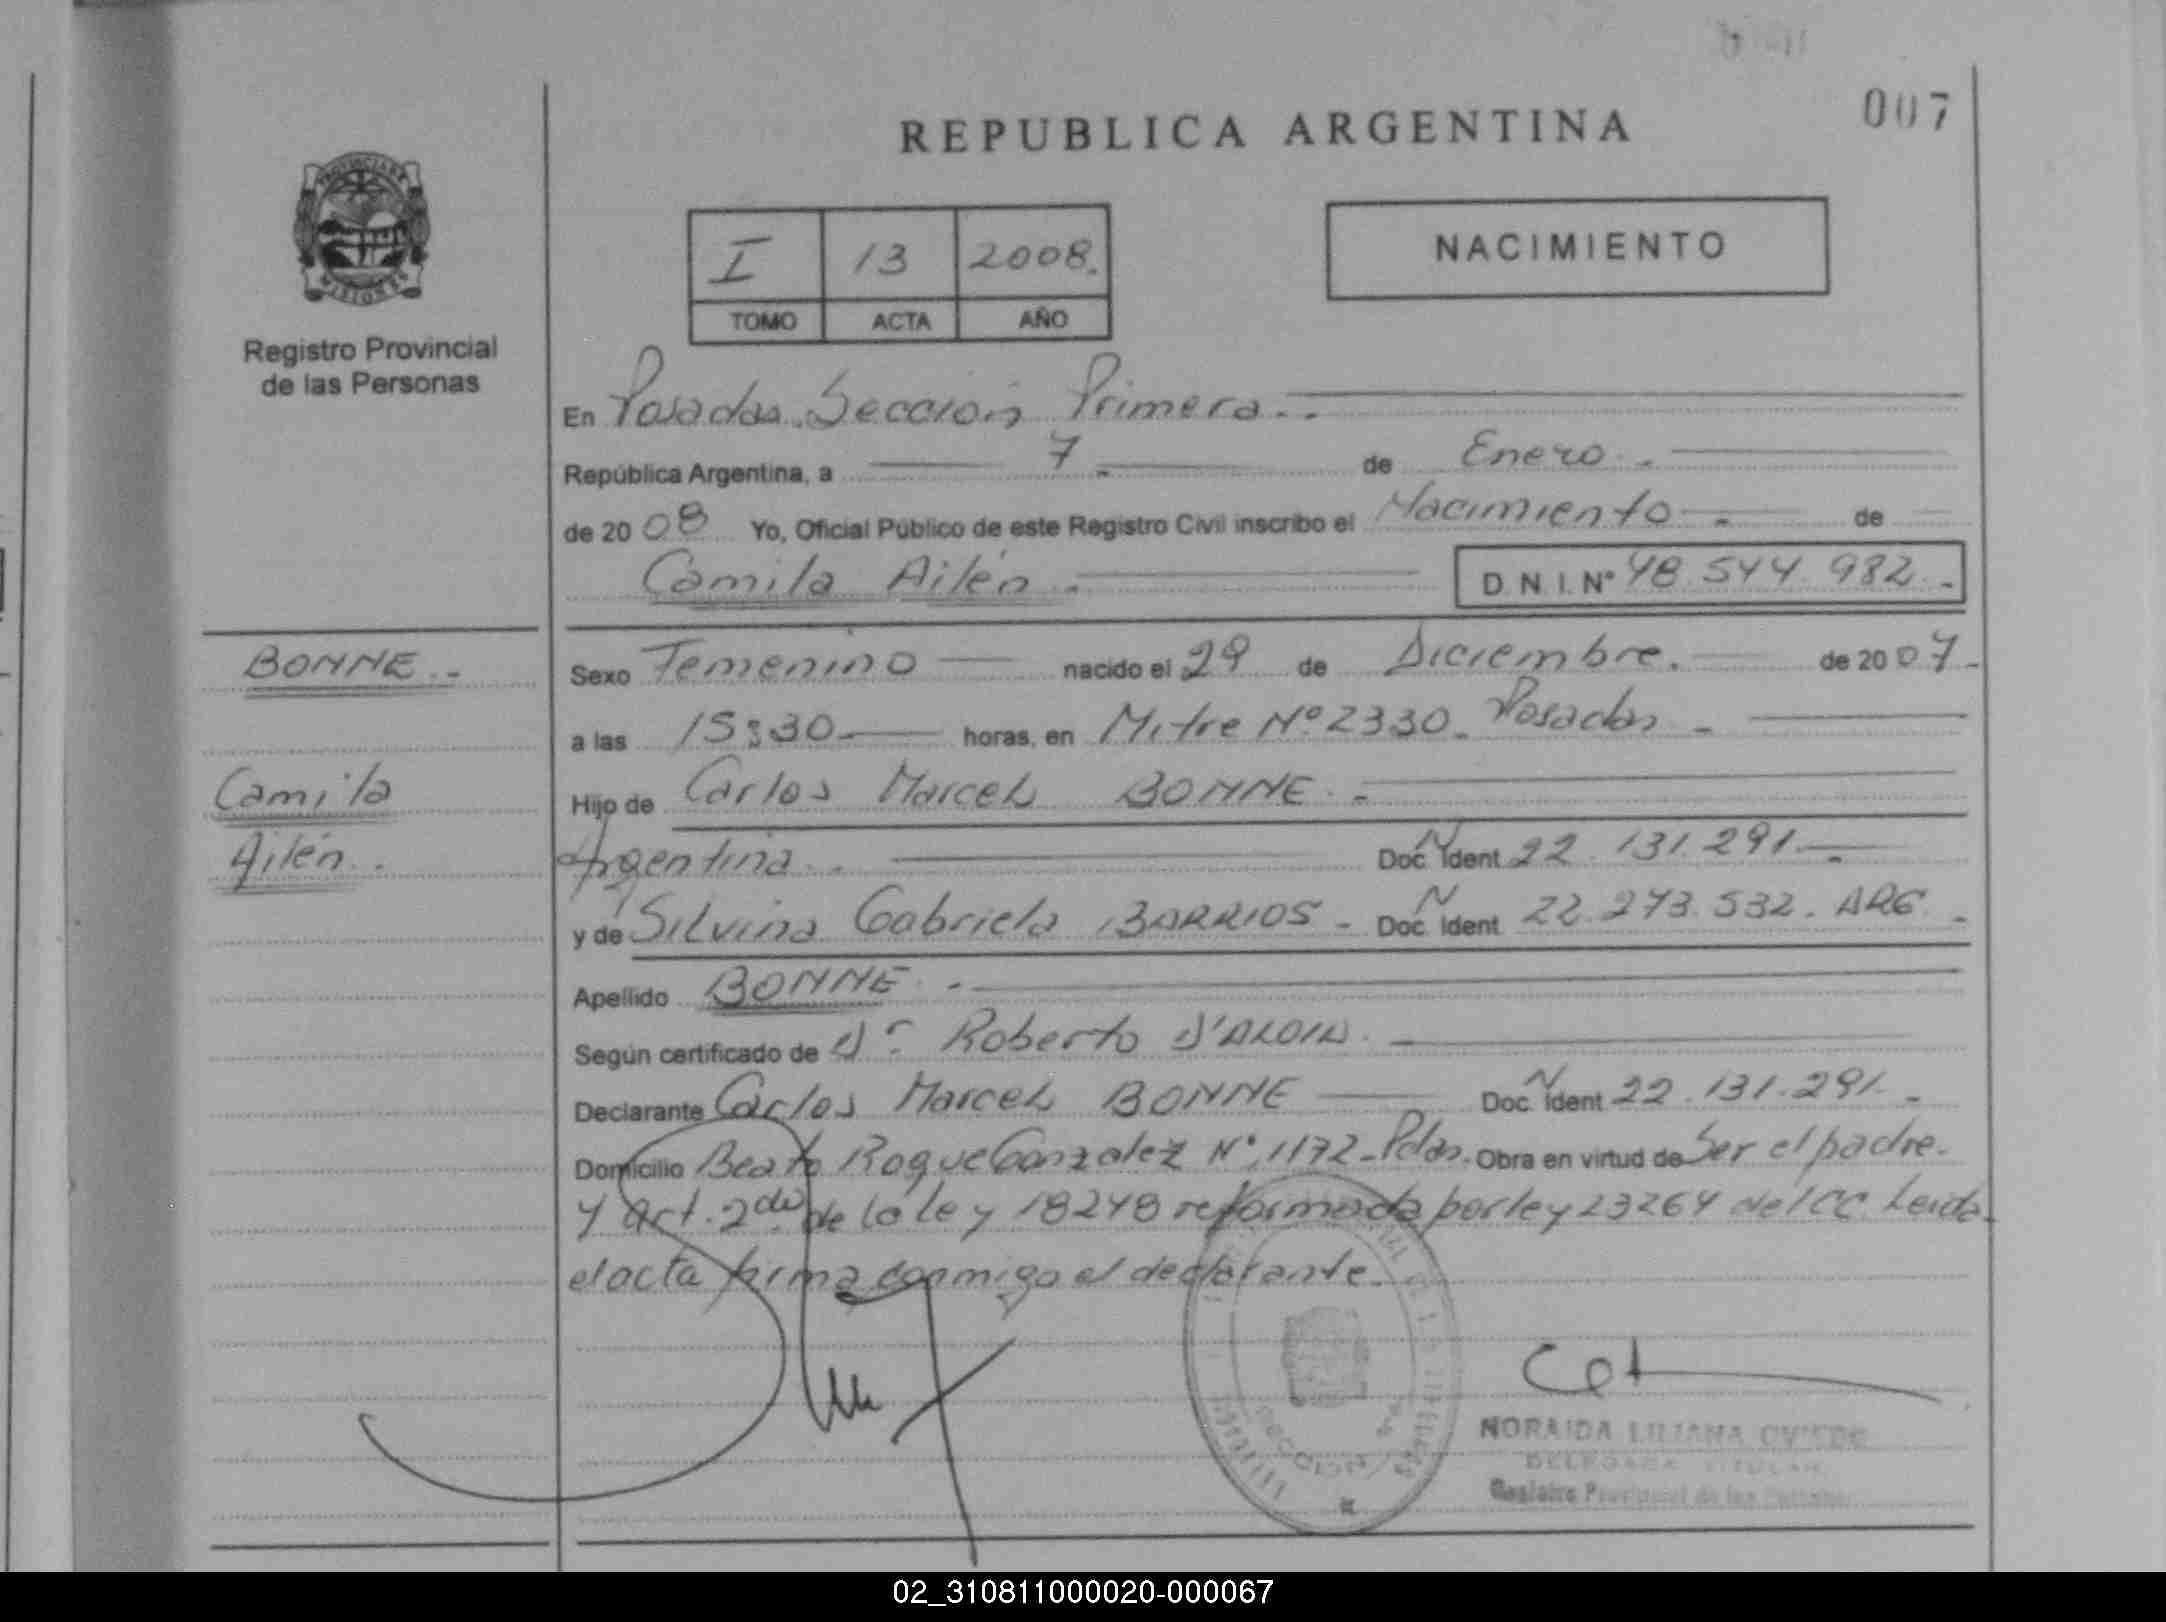 007
REPUBLICA ARGENTINA
PROVINCIA DE
MISIONES
Registro Provincial
de las Personas
I 13 2008.
TOMO ACTA AÑO
NACIMIENTO
En Posadas Sección Primera.-
República Argentina, a 7.- de Enero.-
de 2008 Yo, Oficial Público de este Registro Civil inscribo el Nacimiento.- de
Camila Ailén.- D.N.I.Nº 48.544.982.-
BONNE.-
Camila
Ailén.
Sexo Femenino nacido el 29 de Diciembre. de 2007.-
a las 15:30.- horas, en Mitre Nº 2330. Posadas.-
Hijo de Carlos Marcel BONNE.-
Argentina.- Doc. Ident N 22.131.291.-
y de Silvina Gabriela BARRIOS.- Doc. Ident N 22.273.532. ARG.-
Apellido BONNE.-
Según certificado de Dr. Roberto D'ALOIA.
Declarante Carlos Marcel BONNE Doc. Ident N 22.131.291.-
Domicilio Beato Roque Gonzalez Nº 1172-Pdas. Obra en virtud de Ser el padre.
y Art. 2do de la ley 18248 reformada por ley 23264 del CC. Leida
el acta firma conmigo el declarante.
SECCION
NORAIDA LILIANA OVIEDO
DELEGADA TITULAR
Registro Provincial de las Personas
02_310811000020-000067